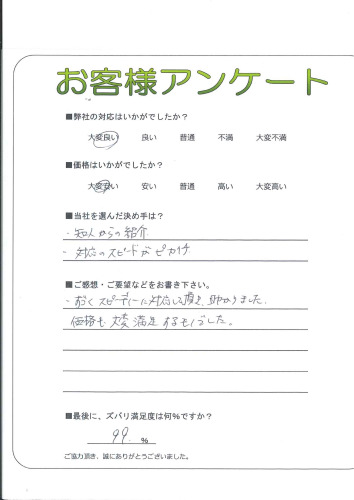 お客様アンケート
■弊社の対応はいかがでしたか？
大変良い 良い 普通 不満 大変不満
■価格はいかがでしたか？
大変安い 安い 普通 高い 大変高い
■当社を選んだ決め手は？
・知人からの紹介
・対応のスピードがピカイチ
■ご感想・ご要望などをお書き下さい。
・スピーディーに対応して頂き、助かりました。
価格も大変満足するモノでした。
■最後に、ズバリ満足度は何%ですか？
99 %
ご協力頂き、誠にありがとうございました。